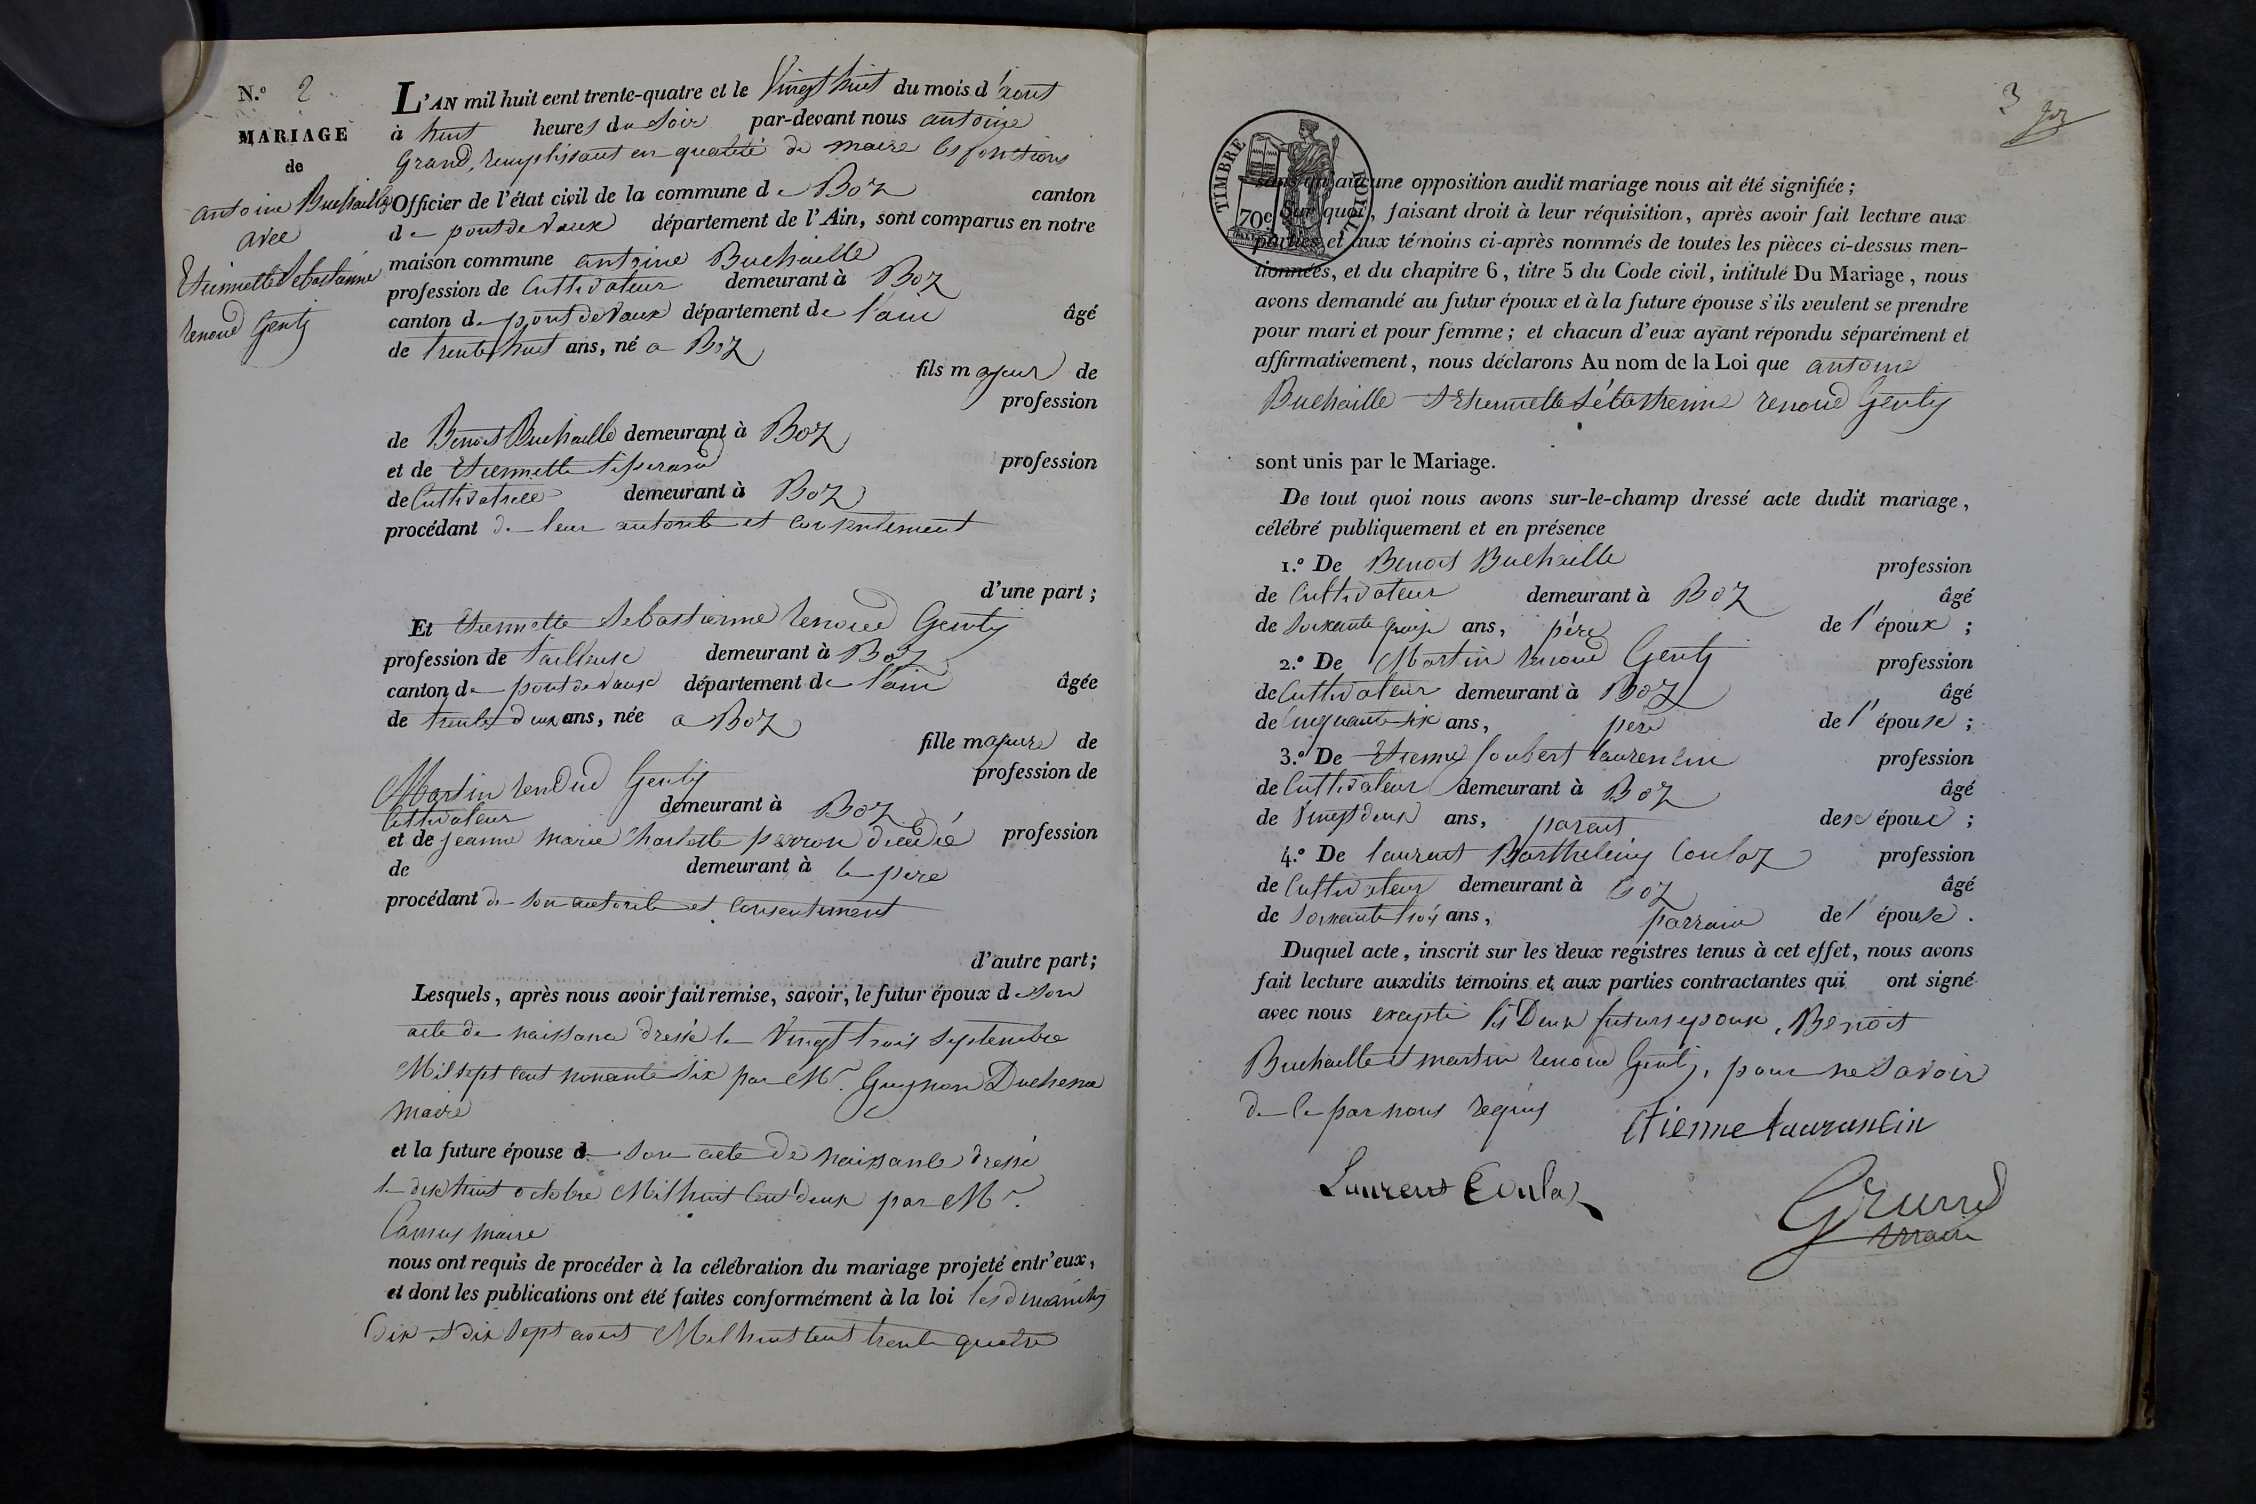 N.º 2
MARIAGE
de
antoine Buchaille
avec
Etiennette Sebastienne
renoud Genty
L'AN mil huit cent trente-quatre et le Vingt huit du mois d'aout
à huit heures du Soir par-devant nous antoine
Grand, remplissant en qualité de maire les fonctions
Officier de l'état civil de la commune de Boz canton
de pont de vaux département de l'Ain, sont comparus en notre
maison commune antoine Buchaille
profession de Cultivateur demeurant à Boz
canton de pont de Vaux département de l'ain âgé
de trente huit ans, né a Boz
fils majeur de
profession
de Benoit Buchaille demeurant à Boz
et de Etiennette profession
de Cultivatrice demeurant à Boz
procédant de leur autorité et consentement
d'une part ;
Et Etiennette Sebastienne renoud Genty
profession de tailleuse demeurant à Boz
canton de pont de vaux département de l'ain âgée
de trente deux ans, née a Boz
fille majeure de
Martin renoud Genty profession de
Cultivateur demeurant à Boz
et de jeanne marie Charlotte perron profession
de demeurant à le père
procédant de son autorité et consentement
d'autre part ;
Lesquels, après nous avoir fait remise, savoir, le futur époux de son
acte de naissance dressé le Vingt trois Septembre
Mil sept cent nonante six par Mr. Guynon Duchena
maire
et la future épouse de son acte de naissance dressé
le dix huit octobre Mil huit cent deux par Mr.
Camus maire
nous ont requis de procéder à la célébration du mariage projeté entr'eux,
et dont les publications ont été faites conformément à la loi les dimanches
dix et dix sept aout Mil huit cent trente quatre
3
TIMBRE ROYAL
70c
sans qu'aucune opposition audit mariage nous ait été signifiée ;
Sur quoi, faisant droit à leur réquisition, après avoir fait lecture aux
parties et aux témoins ci-après nommés de toutes les pièces ci-dessus men-
tionnées, et du chapitre 6, titre 5 du Code civil, intitulé Du Mariage, nous
avons demandé au futur époux et à la future épouse s'ils veulent se prendre
pour mari et pour femme ; et chacun d'eux ayant répondu séparément et
affirmativement, nous déclarons Au nom de la Loi que antoine
Buchaille et Etiennette Sébastienne renoud Genty
sont unis par le Mariage.
De tout quoi nous avons sur-le-champ dressé acte dudit mariage,
célébré publiquement et en présence
1.º De Benoit Buchaille profession
de Cultivateur demeurant à Boz âgé
de Soixante quinze ans, père de l'époux ;
2.º De Martin renoud Genty profession
de Cultivateur demeurant à Boz âgé
de Cinquante six ans, père de l'épouse ;
3.º De Etienne Joubert laurencin profession
de Cultivateur demeurant à Boz âgé
de Vingt deux ans, parent des époux ;
4.º De laurent Barthelemy Coulaz profession
de Cultivateur demeurant à Boz âgé
de Soixante trois ans, parrain de l'épouse.
Duquel acte, inscrit sur les deux registres tenus à cet effet, nous avons
fait lecture auxdits témoins et aux parties contractantes qui ont signé
avec nous excepté les Deux futurs epoux, Benoit
Buchaille et martin renoud Genty, pour ne Savoir
de le par nous requis
Etienne laurancin
Laurent Coulaz
Grand
maire